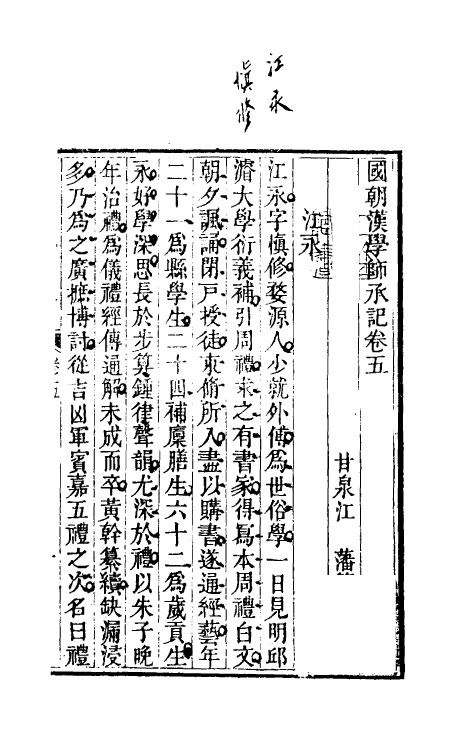 江永
慎修
國朝漢學師承記卷五
甘泉江　藩
江永
江永字慎修婺源人少就外傅爲世俗學一日見明邱
濬大學衍義補引周禮求之有書家得寫本周禮白文
朝夕諷誦閉戸授徒束脩所入盡以購書遂通經藝年
二十一爲縣學生二十四補廩膳生六十二爲歲貢生
永好學深思長於步算鍾律聲韻尤深於禮以朱子晚
年治禮爲儀禮經傳通解未成而卒黃幹纂續缺漏浸
多乃爲之廣摭博討從吉凶軍賓嘉五禮之次名曰禮
卷五